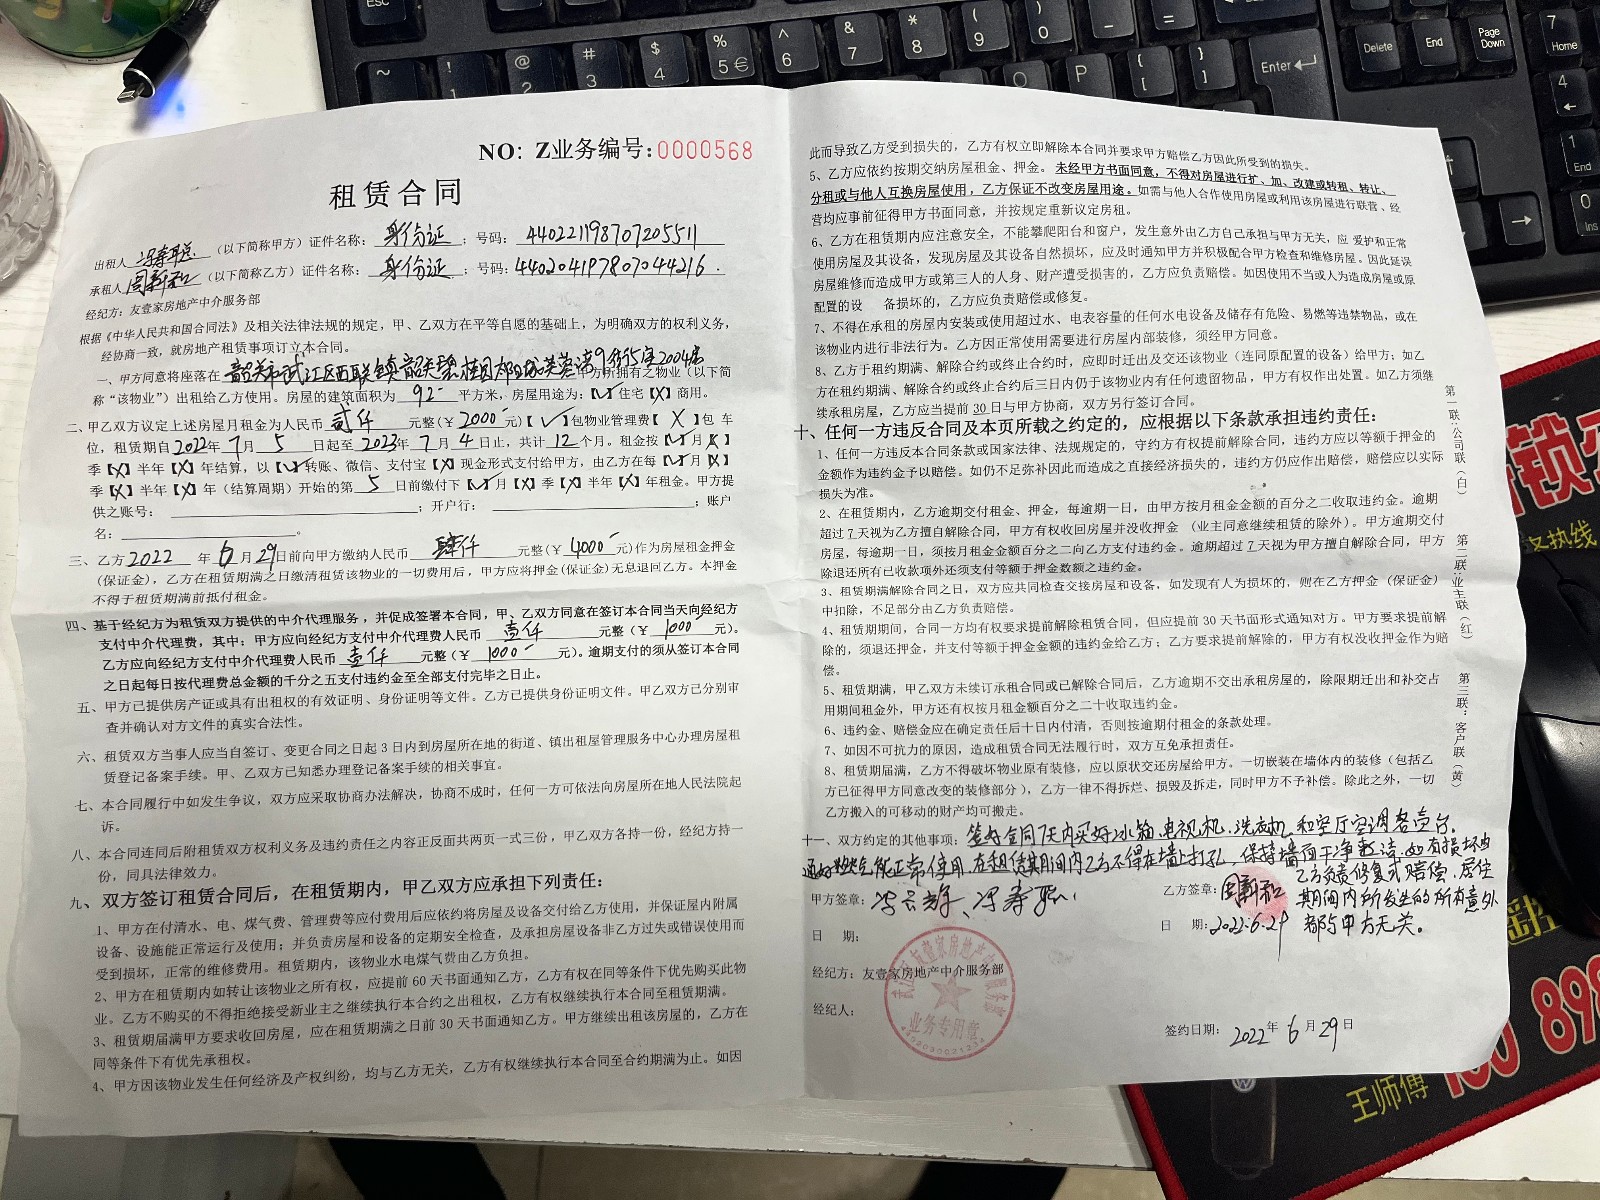 NO: Z业务编号:0000568
租赁合同
出租人 冯寿聪 (以下简称甲方) 证件名称: 身份证 ; 号码: 440221198707205511
承租人 周新和 (以下简称乙方) 证件名称: 身份证 ; 号码: 440204197807044216.
经纪方: 友壹家房地产中介服务部
根据《中华人民共和国合同法》及相关法律法规的规定，甲、乙双方在平等自愿的基础上，为明确双方的权利义务，
经协商一致，就房地产租赁事项订立本合同。
一、甲方同意将座落在 韶关市武江区西联镇韶关碧桂园 芙蓉湾9街5座2004房 甲方所拥有之物业（以下简
称“该物业”）出租给乙方使用。房屋的建筑面积为 92 平方米，房屋用途为：【√】住宅【X】商用。
二、甲乙双方议定上述房屋月租金为人民币 贰仟 元整(￥ 2000 元)【√】包物业管理费【X】包 车
位，租赁期自 2022年 7 月 5 日起至 2023年 7 月 4 日止，共计 12 个月。租金按【√】月【X】
季【X】半年【X】年结算，以【√】转账、微信、支付宝【X】现金形式支付给甲方，由乙方在每【√】月【X】
季【X】半年【X】年（结算周期）开始的第 5 日前缴付下【√】月【X】季【X】半年【X】年租金。甲方提
供之账号：；开户行：；账户
名：。
三、乙方 2022 年 6 月 29 日前向甲方缴纳人民币 肆仟 元整(￥ 4000 元)作为房屋租金押金
(保证金)，乙方在租赁期满之日缴清租赁该物业的一切费用后，甲方应将押金(保证金)无息退回乙方。本押金
不得于租赁期满前抵付租金。
四、基于经纪方为租赁双方提供的中介代理服务，并促成签署本合同，甲、乙双方同意在签订本合同当天向经纪方
支付中介代理费，其中：甲方应向经纪方支付中介代理费人民币 壹仟 元整（￥ 1000 元）。
乙方应向经纪方支付中介代理费人民币 壹仟 元整（￥ 1000 元）。逾期支付的须从签订本合同
之日起每日按代理费总金额的千分之五支付违约金至全部支付完毕之日止。
五、甲方已提供房产证或具有出租权的有效证明、身份证明等文件。乙方已提供身份证明文件。甲乙双方已分别审
查并确认对方文件的真实合法性。
六、租赁双方当事人应当自签订、变更合同之日起3日内到房屋所在地的街道、镇出租屋管理服务中心办理房屋租
赁登记备案手续。甲、乙双方已知悉办理登记备案手续的相关事宜。
七、本合同履行中如发生争议，双方应采取协商办法解决，协商不成时，任何一方可依法向房屋所在地人民法院起
诉。
八、本合同连同后附租赁双方权利义务及违约责任之内容正反面共两页一式三份，甲乙双方各持一份，经纪方持一
份，同具法律效力。
九、双方签订租赁合同后，在租赁期内，甲乙双方应承担下列责任：
1、甲方在付清水、电、煤气费、管理费等应付费用后应依约将房屋及设备交付给乙方使用，并保证屋内附属
设备、设施能正常运行及使用；并负责房屋和设备的定期安全检查，及承担房屋设备非乙方过失或错误使用而
受到损坏，正常的维修费用。租赁期内，该物业水电煤气费由乙方负担。
2、甲方在租赁期内如转让该物业之所有权，应提前60天书面通知乙方，乙方有权在同等条件下优先购买此物
业。乙方不购买的不得拒绝接受新业主之继续执行本合约之出租权，乙方有权继续执行本合同至租赁期满。
3、租赁期届满甲方要求收回房屋，应在租赁期满之日前30天书面通知乙方。甲方继续出租该房屋的，乙方在
同等条件下有优先承租权。
4、甲方因该物业发生任何经济及产权纠纷，均与乙方无关，乙方有权继续执行本合同至合约期满为止。如因
此而导致乙方受到损失的，乙方有权立即解除本合同并要求甲方赔偿乙方因此所受到的损失。
5、乙方应依约按期交纳房屋租金、押金。未经甲方书面同意，不得对房屋进行扩、加、改建或转租、转让、
分租或与他人互换房屋使用，乙方保证不改变房屋用途。如需与他人合作使用房屋或利用该房屋进行联营、经
营均应事前征得甲方书面同意，并按规定重新议定房租。
6、乙方在租赁期内应注意安全，不能攀爬阳台和窗户，发生意外由乙方自己承担与甲方无关，应 爱护和正常
使用房屋及其设备，发现房屋及其设备自然损坏，应及时通知甲方并积极配合甲方检查和维修房屋。因此延误
房屋维修而造成甲方或第三人的人身、财产遭受损害的，乙方应负责赔偿。如因使用不当或人为造成房屋或原
配置的设 备损坏的，乙方应负责赔偿或修复。
7、不得在承租的房屋内安装或使用超过水、电表容量的任何水电设备及储存有危险、易燃等违禁物品，或在
该物业内进行非法行为。乙方因正常使用需要进行房屋内部装修，须经甲方同意。
8、乙方于租约期满、解除合约或终止合约时，应即时迁出及交还该物业（连同原配置的设备）给甲方；如乙
方在租约期满、解除合约或终止合约后三日内仍于该物业内有任何遗留物品，甲方有权作出处置。如乙方须继
续承租房屋，乙方应当提前30日与甲方协商，双方另行签订合同。
十、任何一方违反合同及本页所载之约定的，应根据以下条款承担违约责任：
1、任何一方违反本合同条款或国家法律、法规规定的，守约方有权提前解除合同，违约方应以等额于押金的
金额作为违约金予以赔偿。如仍不足弥补因此而造成之直接经济损失的，违约方仍应作出赔偿，赔偿应以实际
损失为准。
2、在租赁期内，乙方逾期交付租金、押金，每逾期一日，由甲方按月租金金额的百分之二收取违约金。逾期
超过7天视为乙方擅自解除合同，甲方有权收回房屋并没收押金 （业主同意继续租赁的除外）。甲方逾期交付
房屋，每逾期一日，须按月租金金额百分之二向乙方支付违约金。逾期超过7天视为甲方擅自解除合同，甲方
除退还所有已收款项外还须支付等额于押金数额之违约金。
3、租赁期满解除合同之日，双方应共同检查交接房屋和设备，如发现有人为损坏的，则在乙方押金（保证金）
中扣除，不足部分由乙方负责赔偿。
4、租赁期期间，合同一方均有权要求提前解除租赁合同，但应提前30天书面形式通知对方。甲方要求提前解
除的，须退还押金，并支付等额于押金金额的违约金给乙方；乙方要求提前解除的，甲方有权没收押金作为赔
偿。
5、租赁期满，甲乙双方未续订承租合同或已解除合同后，乙方逾期不交出承租房屋的，除限期迁出和补交占
用期间租金外，甲方还有权按月租金额百分之二十收取违约金。
6、违约金、赔偿金应在确定责任后十日内付清，否则按逾期付租金的条款处理。
7、如因不可抗力的原因，造成租赁合同无法履行时，双方互免承担责任。
8、租赁期届满，乙方不得破坏物业原有装修，应以原状交还房屋给甲方。一切嵌装在墙体内的装修（包括乙
方已征得甲方同意改变的装修部分），乙方一律不得拆烂、损毁及拆走，同时甲方不予补偿。除此之外，一切
乙方搬入的可移动的财产均可搬走。
十一、双方约定的其他事项：签好合同7天内买好冰箱、电视机、洗衣机、和空厅空调各壹台。
通好燃气能正常使用，在租赁期间内乙方不得在墙上打孔，保持墙面干净整洁，如有损坏由
乙方负责修复或赔偿，居住
期间内所发生的所有意外
都与甲方无关。
甲方签章： 冯寿聪
乙方签章：周新和
日 期：
日 期：2022.6.29
经纪方：友壹家房地产中介服务部
经纪人：
签约日期：2022年 6 月 29日
业务专用章
第一联:公司联（白）
第二联:业主联（红）
第三联：客户联（黄）
锁
热线
王师傅